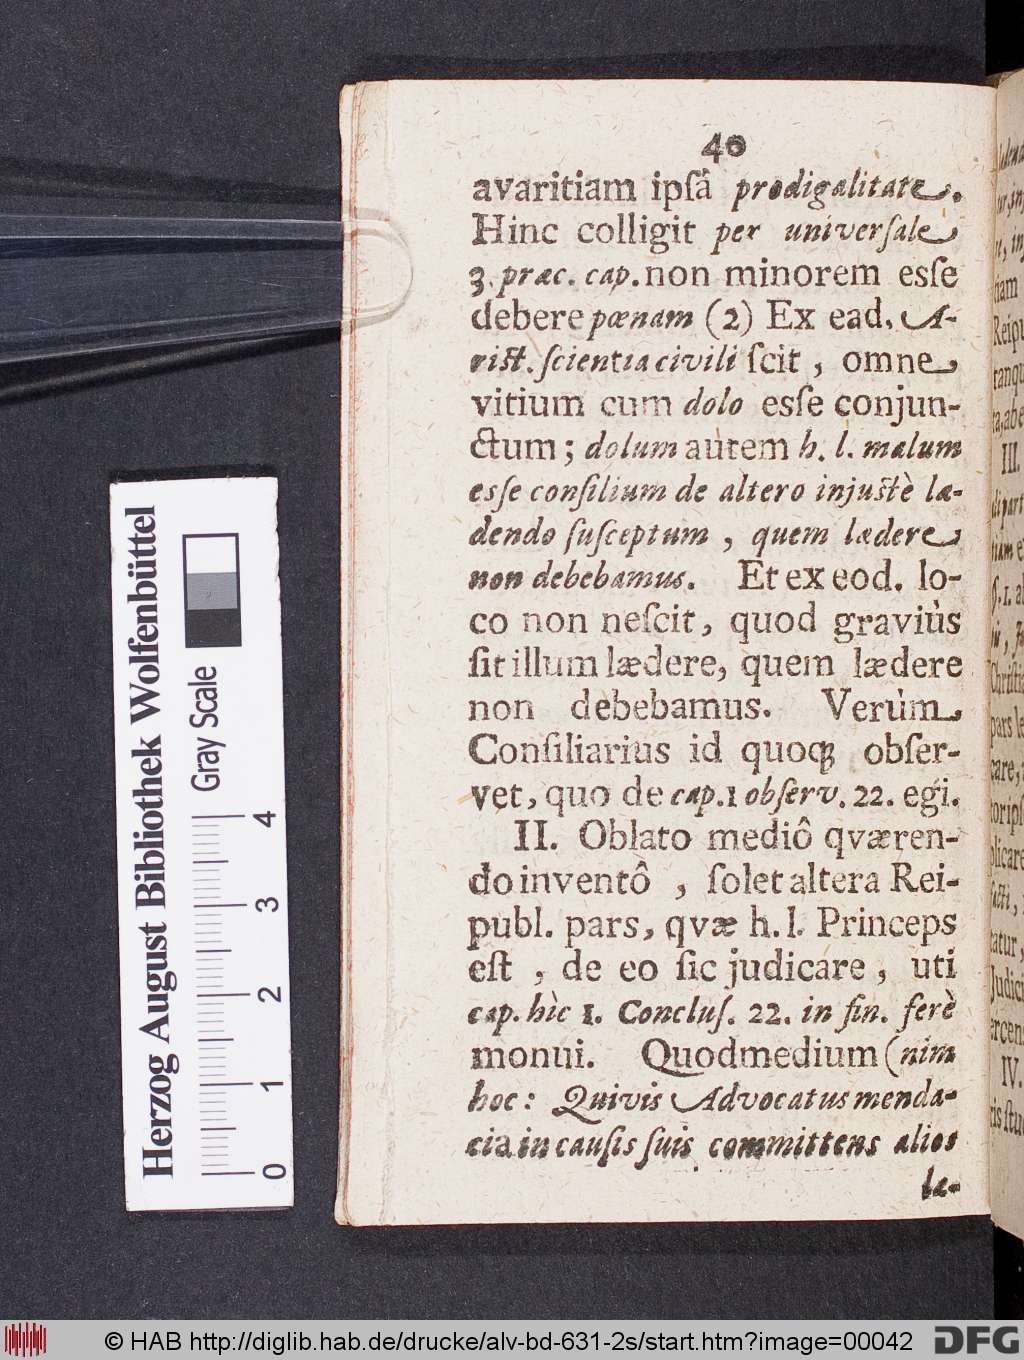 40
avaritiam ipſâ prodigalitate.
Hinc colligit per univerſale
3. præc. cap. non minorem eſſe
debere pœnam (2) Ex ead. A-
riſt. ſcientia civili ſcit, omne
vitium cum dolo eſſe conjun-
ctum; dolum autem h. l. malum
eſſe conſilium de altero injuſtè læ-
dendo ſuſceptum, quem lædere
non debebamus. Et ex eod. lo-
co non neſcit, quod graviùs
ſit illum lædere, quem lædere
non debebamus. Verùm
Conſiliarius id quoqꝫ obſer-
vet, quo de cap. 1 obſerv. 22. egi.
II. Oblato mediô qværen-
do inventô, ſolet altera Rei-
publ. pars, qvæ h. l. Princeps
eſt, de eo ſic judicare, uti
cap. hìc 1. Concluſ. 22. in fin. ferè
monui. Quod medium (nim
hoc: Quivis Advocatus menda-
cia in cauſis ſuis committens alios
læ-
Herzog August Bibliothek Wolfenbüttel
Gray Scale
0 1 2 3 4
© HAB http://diglib.hab.de/drucke/alv-bd-631-2s/start.htm?image=00042
DFG